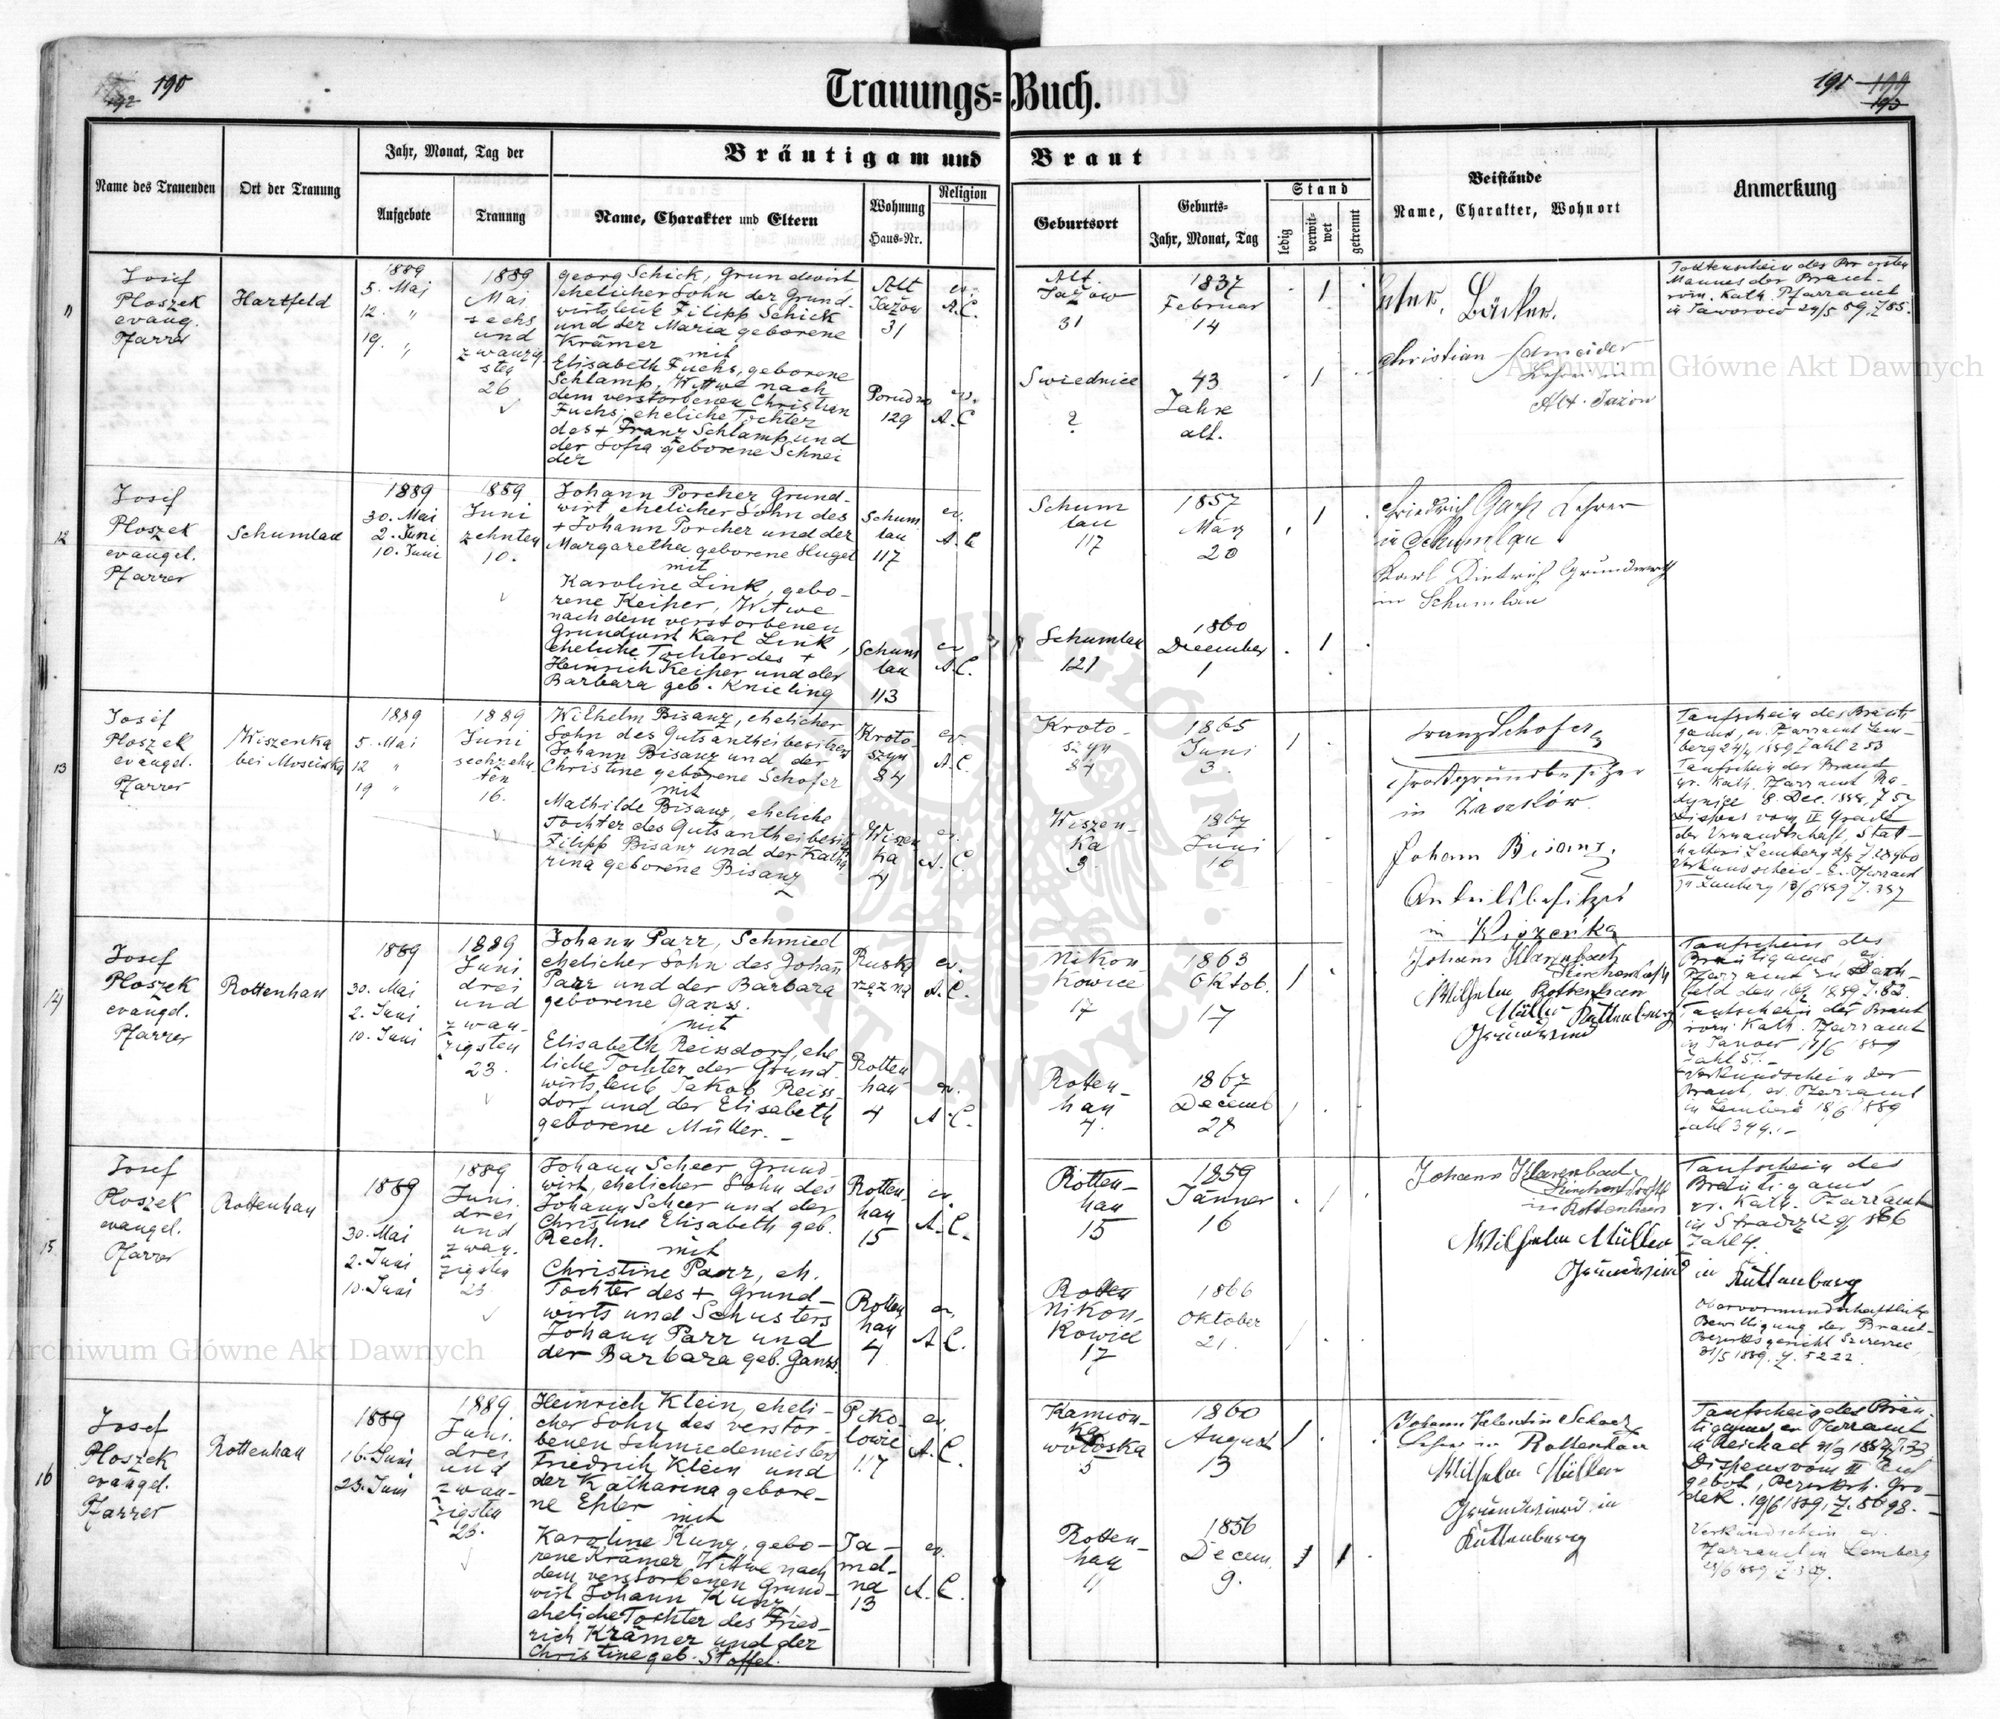 190
192
Trauungs-Buch.
191 199
193
Name des Trauenden
Ort der Trauung
Jahr, Monat, Tag der
Aufgebote
Trauung
Bräutigam und Braut
Name, Charakter und Eltern
Wohnung
Haus-Nr.
Religion
Geburtsort
Geburts-
Jahr, Monat, Tag
Stand
ledig
verwit-
wet
getrennt
Beistände
Name, Charakter, Wohnort
Anmerkung
11
Josef
Ploszek
evang.
Pfarrer
Hartfeld
1889
5. Mai
12. "
19. "
1889
Mai
sechs
und
zwanzig
sten
26
Georg Schick, Grundwirt
ehelicher Sohn der Grund-
wirtsleute Filipp Schick
und der Maria geborene
Krämer mit
Elisabeth Fuchs, geborene
Schlamp, Witwe nach
dem verstorbenen Christian
Fuchs, eheliche Tochter
des + Franz Schlamp und
der Sofia geborene Schnei
der
Alt
Jażow
31
ev.
A.C.
129
ev.
A.C.
Alt
Jażow
31
1837
Februar
14
Swiednice
?
43
Jahre
alt.
Christian Schneider
Lehrer in
Alt-Jazow
Todtenschein des ersten
Mannes der Braut
röm. Kath. Pfarramt
in Jaworow 24/5 89, Z 85.
12
Josef
Ploszek
evangel.
Pfarrer
Schumlau
1889
30. Mai
2. Juni
10. Juni
1889
Juni
zehnten
10.
Johann Porcher Grund-
wirt, ehelicher Sohn des
+ Johann Porcher und der
Margaretha geborene Hugel
mit
Karoline Link, gebo-
rene Keiper, Witwe
nach dem verstorbenen
Grundwirt Karl Link,
eheliche Tochter des +
Heinrich Keiper und der
Barbara geb. Knieling
Schum
lau
117
ev.
A.C.
Schum
lau
113
ev.
A.C.
Schum
lau
117
1857
März
20
Schumlau
121
1860
December
1
Friedrich Lehrer
in Schumlau
Karl Dietrich Grundwirth
in Schumlau
13
Josef
Ploszek
evangel.
Pfarrer
Wiszenka
bei Mosciska
1889
5. Mai
12 "
19 "
1889
Juni
sechzehn
ten
16.
Wilhelm Bisanz, ehelicher
Sohn des Gutsantheibesitzers
Johann Bisanz und der
Christine geborene Schofer
mit
Mathilde Bisanz, eheliche
Tochter des Gutsantheibesitz
Filipp Bisanz und der Katha
rina geborene Bisanz
Kroto-
szyn
84
ev.
A.C.
Wiszen
ka
4
ev.
A.C.
Kroto-
szyn
84
1865
Juni
3.
Wiszen-
ka
3
1867
Juni
16
Franz Schofer
Großgrundbesitzer
in
Johann Bisanz
Anteilsbesitzer
in Wiszenka
Taufschein des Bräuti-
gams, ev. Pfarramt Lem-
berg 24/4 1889 Zahl 253
Taufschein der Braut
gr. Kath. Pfarramt
8. Dec. 1888, Z 57
Dispens vom IV Grade
der Verwandtschaft, Stat-
halterei Lemberg
Verkundschein - Ev. Pfarramt
in Lemberg 13/6 1889 Z. 337
14
Josef
Ploszek
evangel.
Pfarrer
Rottenhan
1889
30. Mai
2. Juni
10. Juni
1889
Juni
drei
und
zwan-
zigsten
23.
Johann Parr, Schmied
ehelicher Sohn des Johan
Parr und der Barbara
geborene Ganss.
mit
Elisabeth Reissdorf, ehe
liche Tochter der Grund-
wirtsleute Jakob Reiss-
dorf und der Elisabeth
geborene Müller. -
ev.
A.C.
Rotten
han
4
ev.
A.C.
Nikon
kowice
17
1863
Oktob.
17
Rotten-
han
4.
1867
Decemb
28
Johann Klarenbach
Wilhelm Rottenhan
Müller Ruttenburg
Taufschein des
Bräutigams, ev.
Pfarramt zu
feld
Taufschein der Braut
röm. Kath. Pfarramt
in Janow 17/6 1889
Zahl 51.-
Verkundschein der
Braut, ev. Pfarramt
in Lemberg 18/6 1889
Zahl 344.-
15.
Josef
Ploszek
evangel.
Pfarrer
Rottenhan
1889
30. Mai
2. Juni
10. Juni
1889
Juni
drei
und
zwan-
zigsten
23.
Johann Scheer, Grund
wirt, ehelicher Sohn des
Johann Scheer und der
Christine Elisabeth geb.
Rech. mit
Christine Parr, eh.
Tochter des + Grund-
wirts und Schusters
Johann Parr und
der Barbara geb. Ganss.
Rotten
han
15
ev.
A.C.
Rotten
han
4
ev.
A.C.
Rotten-
han
15
1859
Jänner
16
Rotten
Nikon-
kowice
17
1866
Oktober
21.
Johann Klarenbach
in Rottenhan
Wilhelm Müller
in Ruttenburg
Taufschein des
Bräutigams
Kath. Pfarramt
in Stradcz
Zahl 4.
Obervormundschaftliche
Bewilligung der Braut-
Bezirksgericht Szczerzec
31/5 1889. Z. 5222.
16
Josef
Ploszek
evangel.
Pfarrer
Rottenhan
1889
16. Juni
23. Juni
1889.
Juni.
drei
und
zwan-
zigsten
23.
Heinrich Klein, eheli-
cher Sohn des verstor-
benen Schmiedemeisters
Friedrich Klein und
der Katharina gebore-
ne Epler mit
Karoline Kunz, gebo-
rene Krämer, Witwe nach
dem verstorbenen Grund-
wirt Johann Kunz,
eheliche Tochter des Fried-
rich Krämer und der
Christine geb. Stoffel.
Piko-
lowice
117
ev.
A.C.
Ja-
md-
na
13
ev.
A.C.
Kamion-
ka
woloska
5
1860
August
13
Rotten-
han
11
1856
Decem.
9.
Johann Valentin Scharz
Lehrer in Rottenhan
Wilhelm Müller
in
Ruttenburg
Taufschein des Bräu-
tigams, ev. Pfarramt
in Reichau
Dispens vom III Auf
gebot, Bezirksh. Gro-
dek. 19/6 1889, Z. 8698.-
Verkundschein ev.
Pfarramt in Lemberg
Archiwum Główne Akt Dawnych
Archiwum Główne Akt Dawnych